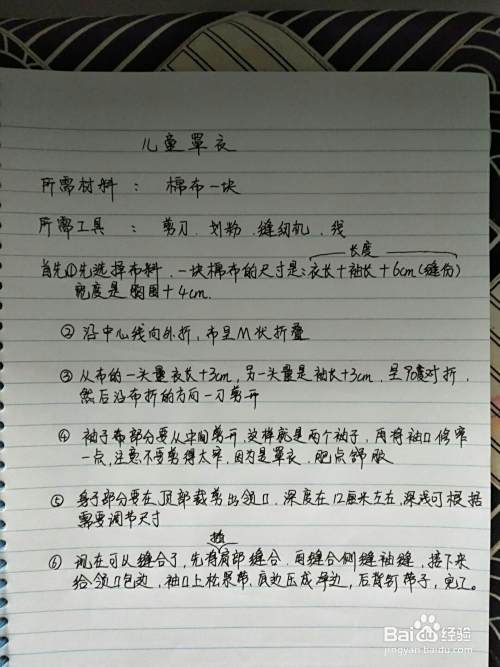 儿童罩衣
所需材料：棉布一块
所需工具：剪刀、划粉、缝纫机、线
长度
首先①先选择布料，一块棉布的尺寸是：衣长+袖长+6cm(缝份)
宽度是胸围+4cm.
②沿中心线向外折，布呈M状折叠
③从布的一头量衣长+3cm，另一头量是袖长+3cm，呈90度对折，
然后沿布折的方向一刀剪开
④袖子布部分要从中间剪开，这样就是两个袖子，再将袖口修窄
一点，注意不要剪得太窄，因为是罩衣，肥点舒服
⑤身子部分要在顶部裁剪出领口，深度在12厘米左右，深浅可根据
需要调节尺寸
⑥现在可以缝合了，先将肩部缝合，再缝合侧缝袖缝，接下来
给领口包边，袖口上松紧带，底边压成净边，后背钉带子，完了。
Baidu经验
jingyan.baidu.com